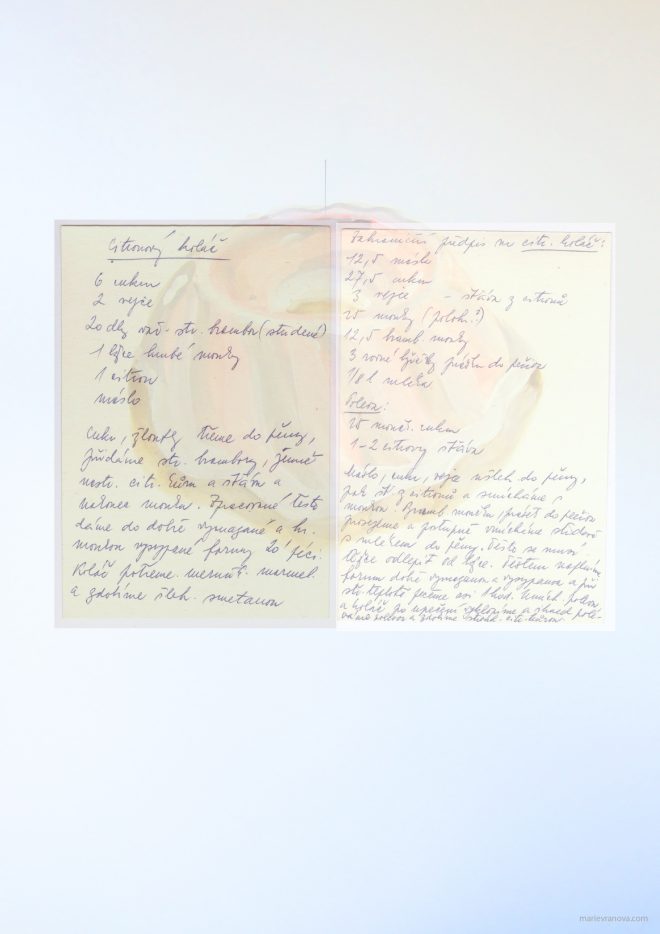 Citronový koláč
6 cukru
2 vejce
20 dkg vař. str. brambor (studené)
1 lžíce hrubé mouky
1 citron
máslo
Cukr, žloutky třeme do pěny,
přidáme str. brambory, jemně
nastr. citr. kůru a šťávu a
nakonec mouku. Zpracované těsto
dáme do dobře vymazané a hr.
moukou vysypané formy 20' péci.
Koláč potřeme meruňk. marmel.
a zdobíme šleh. smetanou
Zahraniční předpis na citr. koláč:
12,5 másla
27,5 cukru
3 vejce - šťáva z citronů
25 mouky (poloh.?)
12,5 bramb. mouky
3 rovné lžičky prášku do pečiva
1/8 l mléka
Poleva:
25 mouč. cukru
1-2 citrony šťáva
Máslo, cukr, vejce ušleh. do pěny,
pak šť. z citronů a smícháme s
moukou. Bramb. moučku, prášek do pečiva
prosejeme a postupně vmícháme střídavě
s mlékem do pěny. Těsto se musí
lžíce odlepit od lžíce. Těstem naplníme
formu dobře vymazanou a vysypanou a při
stř. teplotě pečeme asi 1 hod. Umích. polevu
a koláč po upečení vyklopíme a ihned polé-
váme polevou a zdobíme citr. kůrou.
marievranova.com